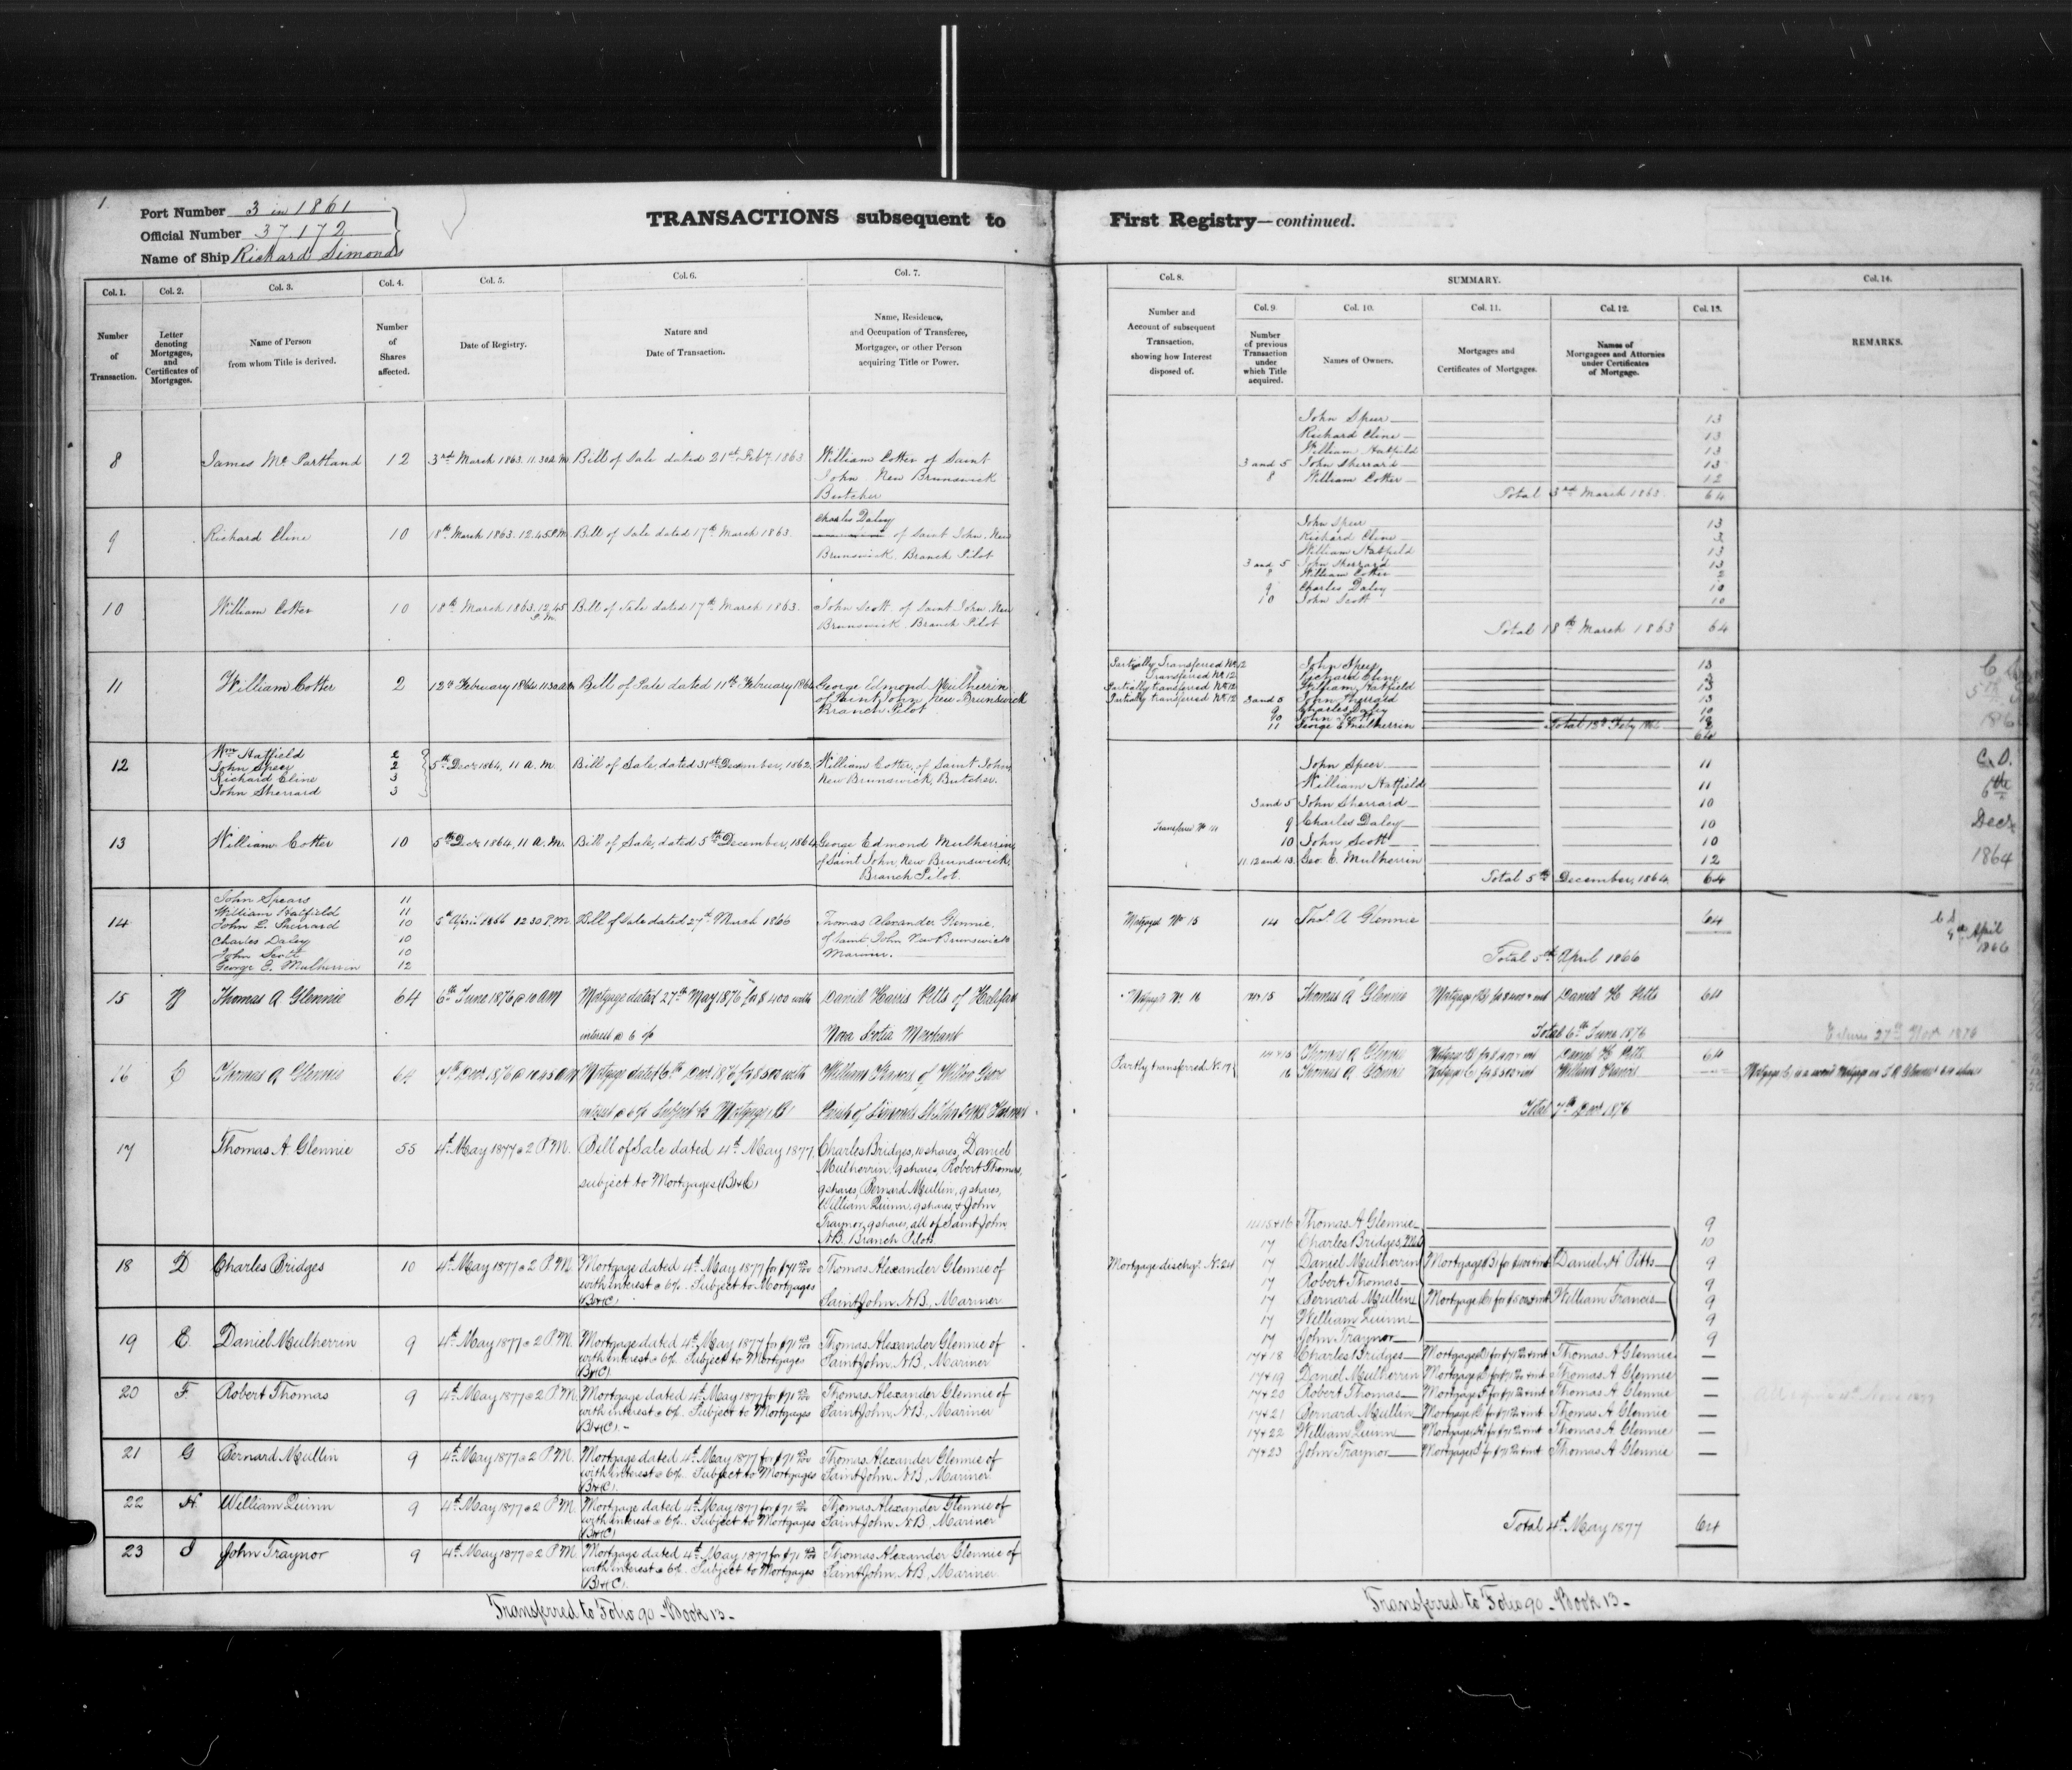 1.
Port Number 3 in 1861
Official Number 37.172
Name of Ship Richard Simonds
TRANSACTIONS subsequent to
Col. 1.
Col. 2.
Col. 3.
Col. 4.
Col. 5.
Col. 6.
Col. 7.
Number of Transaction.
Letter denoting Mortgages, and Certificates of Mortgages.
Name of Person from whom Title is derived.
Number of Shares affected.
Date of Registry.
Nature and Date of Transaction.
Name, Residence, and Occupation of Transferee, Mortgagee, or other Person acquiring Title or Power.
8 James Mc Partland 12 3rd March 1863. 11.30 A.M Bill of Sale dated 21st Feby 1863 William Cotter of Saint
John New Brunswick
Butcher
9 Richard Cline 10 18th March 1863. 12.45 P.M Bill of Sale dated 17th March 1863. Charles Daley
of Saint John, New
Brunswick. Branch Pilot
10 William Cotter 10 18th March 1863. 12.45 P.M. Bill of Sale dated 17th March 1863. John Scott of Saint John, New
Brunswick. Branch Pilot
11 William Cotter 2 12th February 1864 11.30 AM Bill of Sale dated 11th February 1864 George Edmond Mulherrin
of Saint John New Brunswick
Branch Pilot
12 Wm Hatfield 2
John Speer 2
Richard Cline 3
John Sherrard 3
5th Decr 1864, 11 A.M. Bill of Sale, dated 31st December, 1862. William Cotter, of Saint John,
New Brunswick, Butcher.
13 William Cotter 10 5th Decr 1864, 11 A.M. Bill of Sale, dated 5th December, 1864. George Edmond Mulherrin,
of Saint John, New Brunswick,
Branch Pilot.
14 John Spears 11
William Hatfield 11
John L. Sherrard 10
Charles Daley 10
John Scott 10
George E. Mulherrin 12
5th April 1866 12 30 P.M. Bill of Sale dated 27th March 1866 Thomas Alexander Glennie
of Saint John New Brunswick
Mariner.
15 B Thomas A Glennie 64 6th June 1876 @ 10 AM Mortgage dated 27th May 1876 for $400 with Daniel Harris Pitts of Halifax
interest @ 6 % Nova Scotia Merchant
16 C Thomas A Glennie 64 7th Decr 1876 @ 10.45 AM Mortgage dated 6th Decr 1876 for $500 with William Francis of Willow Grove
interest @ 6% Subject to Mortgage (B) Parish of Simonds St John Co NB Farmer
17 Thomas A. Glennie 55 4th May 1877 @ 2 P.M. Bill of Sale dated 4th May 1877, Charles Bridges, 10 shares, Daniel
subject to Mortgages (B) & (C) Mulherrin, 9 shares, Robert Thomas,
9 shares, Bernard Mullin, 9 shares,
William Quinn, 9 shares, & John
Traynor, 9 shares, all of Saint John,
N.B. Branch Pilots
18 D Charles Bridges 10 4th May 1877 @ 2 P.M. Mortgage dated 4th May 1877 for $71 Thomas Alexander Glennie of
with interest @ 6%. Subject to Mortgages
(B) & (C). Saint John, N.B., Mariner
19 E Daniel Mulherrin 9 4th May 1877 @ 2 P.M. Mortgage dated 4th May 1877 for $71 Thomas Alexander Glennie of
with interest @ 6%. Subject to Mortgages Saint John, N.B., Mariner
(B) & (C)
20 F Robert Thomas 9 4th May 1877 @ 2 P.M. Mortgage dated 4th May 1877 for $71 Thomas Alexander Glennie of
with interest @ 6%. Subject to Mortgages Saint John, N.B., Mariner
(B) & (C). -
21 G Bernard Mullin 9 4th May 1877 @ 2 P.M. Mortgage dated 4th May 1877 for $71 Thomas Alexander Glennie of
with interest @ 6%. Subject to Mortgages Saint John, N.B., Mariner
(B) & (C).
22 H William Quinn 9 4th May 1877 @ 2 P.M. Mortgage dated 4th May 1877 for $71 Thomas Alexander Glennie of
with interest @ 6%. Subject to Mortgages Saint John, N.B., Mariner
(B) & (C)
23 I John Traynor 9 4th May 1877 @ 2 P.M. Mortgage dated 4th May 1877 for $71 Thomas Alexander Glennie of
with interest @ 6%. Subject to Mortgages Saint John, N.B., Mariner
(B) & (C).
Transferred to Folio 90 - Book 13 -
First Registry—continued.
Col. 8.
SUMMARY.
Col. 14.
Col. 9
Col. 10.
Col. 11.
Col. 12.
Col. 13.
Number and Account of subsequent Transaction, showing how Interest disposed of.
Number of previous Transaction under which Title acquired.
Names of Owners.
Mortgages and Certificates of Mortgages.
Names of Mortgagees and Attornies under Certificates of Mortgage.
REMARKS.
John Speer 13
Richard Cline 13
William Hatfield 13
3 and 5 John Sherrard 13
8 William Cotter 12
Total 3rd March 1863. 64
John Speer 13
Richard Cline 3
William Hatfield 13
3 and 5 John Sherrard 13
8 William Cotter 2
9 Charles Daley 10
10 John Scott 10
Total 18th March 1863 64
Partially Transferred No 12 John Speer 13
Transferred No 12 Richard Cline 3
Partially transferred No 12 William Hatfield 13
Partially transferred No 12 3 and 5 John Sherrard 13
9 Charles Daley 10
10 John Scott 10
11 George E Mulherrin 2
Total 12th Feby 1864 64
John Speer 11
William Hatfield 11
3 and 5 John Sherrard 10
Transferred No 14 9 Charles Daley 10
10 John Scott 10
11. 12 and 13. Geo. E. Mulherrin 12
Total 5th December, 1864. 64
C. D.
6th
Decr
1864
Mortgaged No 15 14 Thos. A Glennie 64
Total 5th April 1866
April
1866
Mortgaged No 16 Thomas A Glennie Mortgage (B) for $400 & int Daniel H Pitts 64
Total 6th June 1876
27th Nov 1876
Partly transferred No 17 14 & 15 Thomas A Glennie Mortgage B for $400 & int Daniel H Pitts 64
16 Thomas A Glennie Mortgage C for $500 & int William Francis
Mortgage C, is a second Mortgage on T A Glennies 64 shares
Total 7th Decr 1876
Thomas A Glennie 9
17 Charles Bridges 10
Mortgage dischgd. No 24 17 Daniel Mulherrin Mortgage (B) for $400 & int Daniel H Pitts 9
17 Robert Thomas 9
17 Bernard Mullin Mortgage (C) for $500 & int William Francis 9
17 William Quinn 9
17 John Traynor 9
17 & 18 Charles Bridges Mortgage (D) for $71 & int Thomas A Glennie —
17 & 19 Daniel Mulherrin Mortgage (E) for $71 & int Thomas A Glennie —
17 & 20 Robert Thomas Mortgage (F) for $71 & int Thomas A Glennie —
17 & 21 Bernard Mullin Mortgage (G) for $71 & int Thomas A Glennie —
17 & 22 William Quinn Mortgage (H) for $71 & int Thomas A Glennie —
17 & 23 John Traynor Mortgage (I) for $71 & int Thomas A Glennie —
Total 4th May 1877 64
Transferred to Folio 90 - Book 13 -